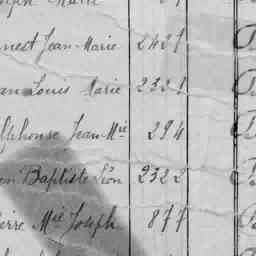 Marie
Jean Marie 2421
Louis Marie 2321
Alphonse Jean Mie 294
Baptiste Léon 2322
Mie Joseph 877